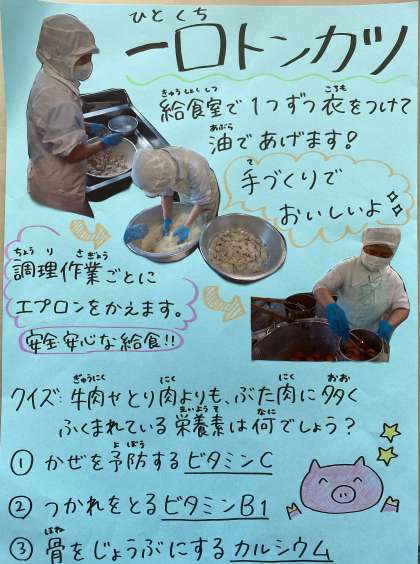 ひとくち
一口トンカツ
きゅうしょくしつ ころも
給食室で1つずつ衣をつけて
あぶら
油であげます!
て
手づくりで
おいしいよ
ちょうり さぎょう
調理作業ごとに
エプロンをかえます。
安全安心な給食!!
ぎゅうにく にく にく おお
クイズ:牛肉やとり肉よりも、ぶた肉に多く
えいようそ なに
ふくまれている栄養素は何でしょう?
よぼう
① かぜを予防するビタミンC
② つかれをとるビタミンB1
ほね
③ 骨をじょうぶにするカルシウム